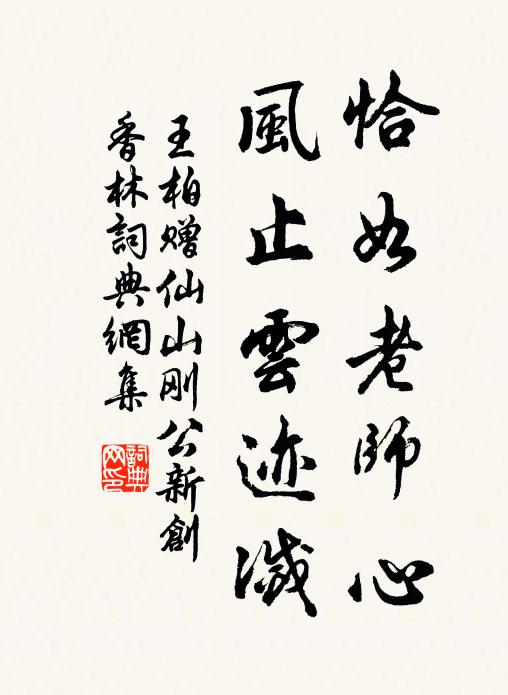 恰如老師心
風止雲迹滅
王柏贈仙山刚公新創
香林詞典網集
詞典网印